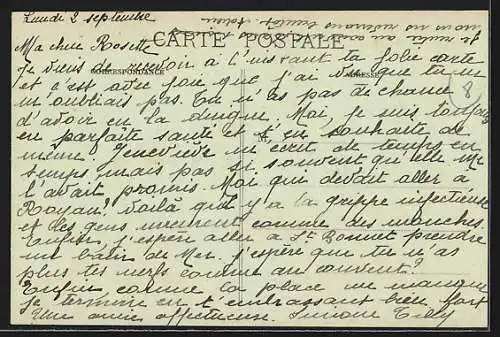 Lundi 2 septembre
CARTE POSTALE
CORRESPONDANCE
Ma chère Rosette
Je viens de recevoir à l'instant ta jolie carte
et c'est avec joie que j'ai vu que tu ne
m'oubliais pas. Tu n'as pas de chance
d'avoir eu la dingue. Moi, je suis toujours
en parfaite santé et t'en souhaite de
même. Geneviève m'écrit de temps en
temps, mais pas si souvent qu'elle me
l'avait promis. Moi qui devait aller à
Royan! voilà qu'il y a la grippe infectieuse
et les gens meurent comme des mouches.
Enfin, j'espère aller à St Bonnet prendre
un bain de Mer. J'espère que tu n'as
plus tes nerfs comme au couvent?
Enfin comme la place me manque
je termine en t'embrassant bien fort
Une amie affectueuse. Simone
8